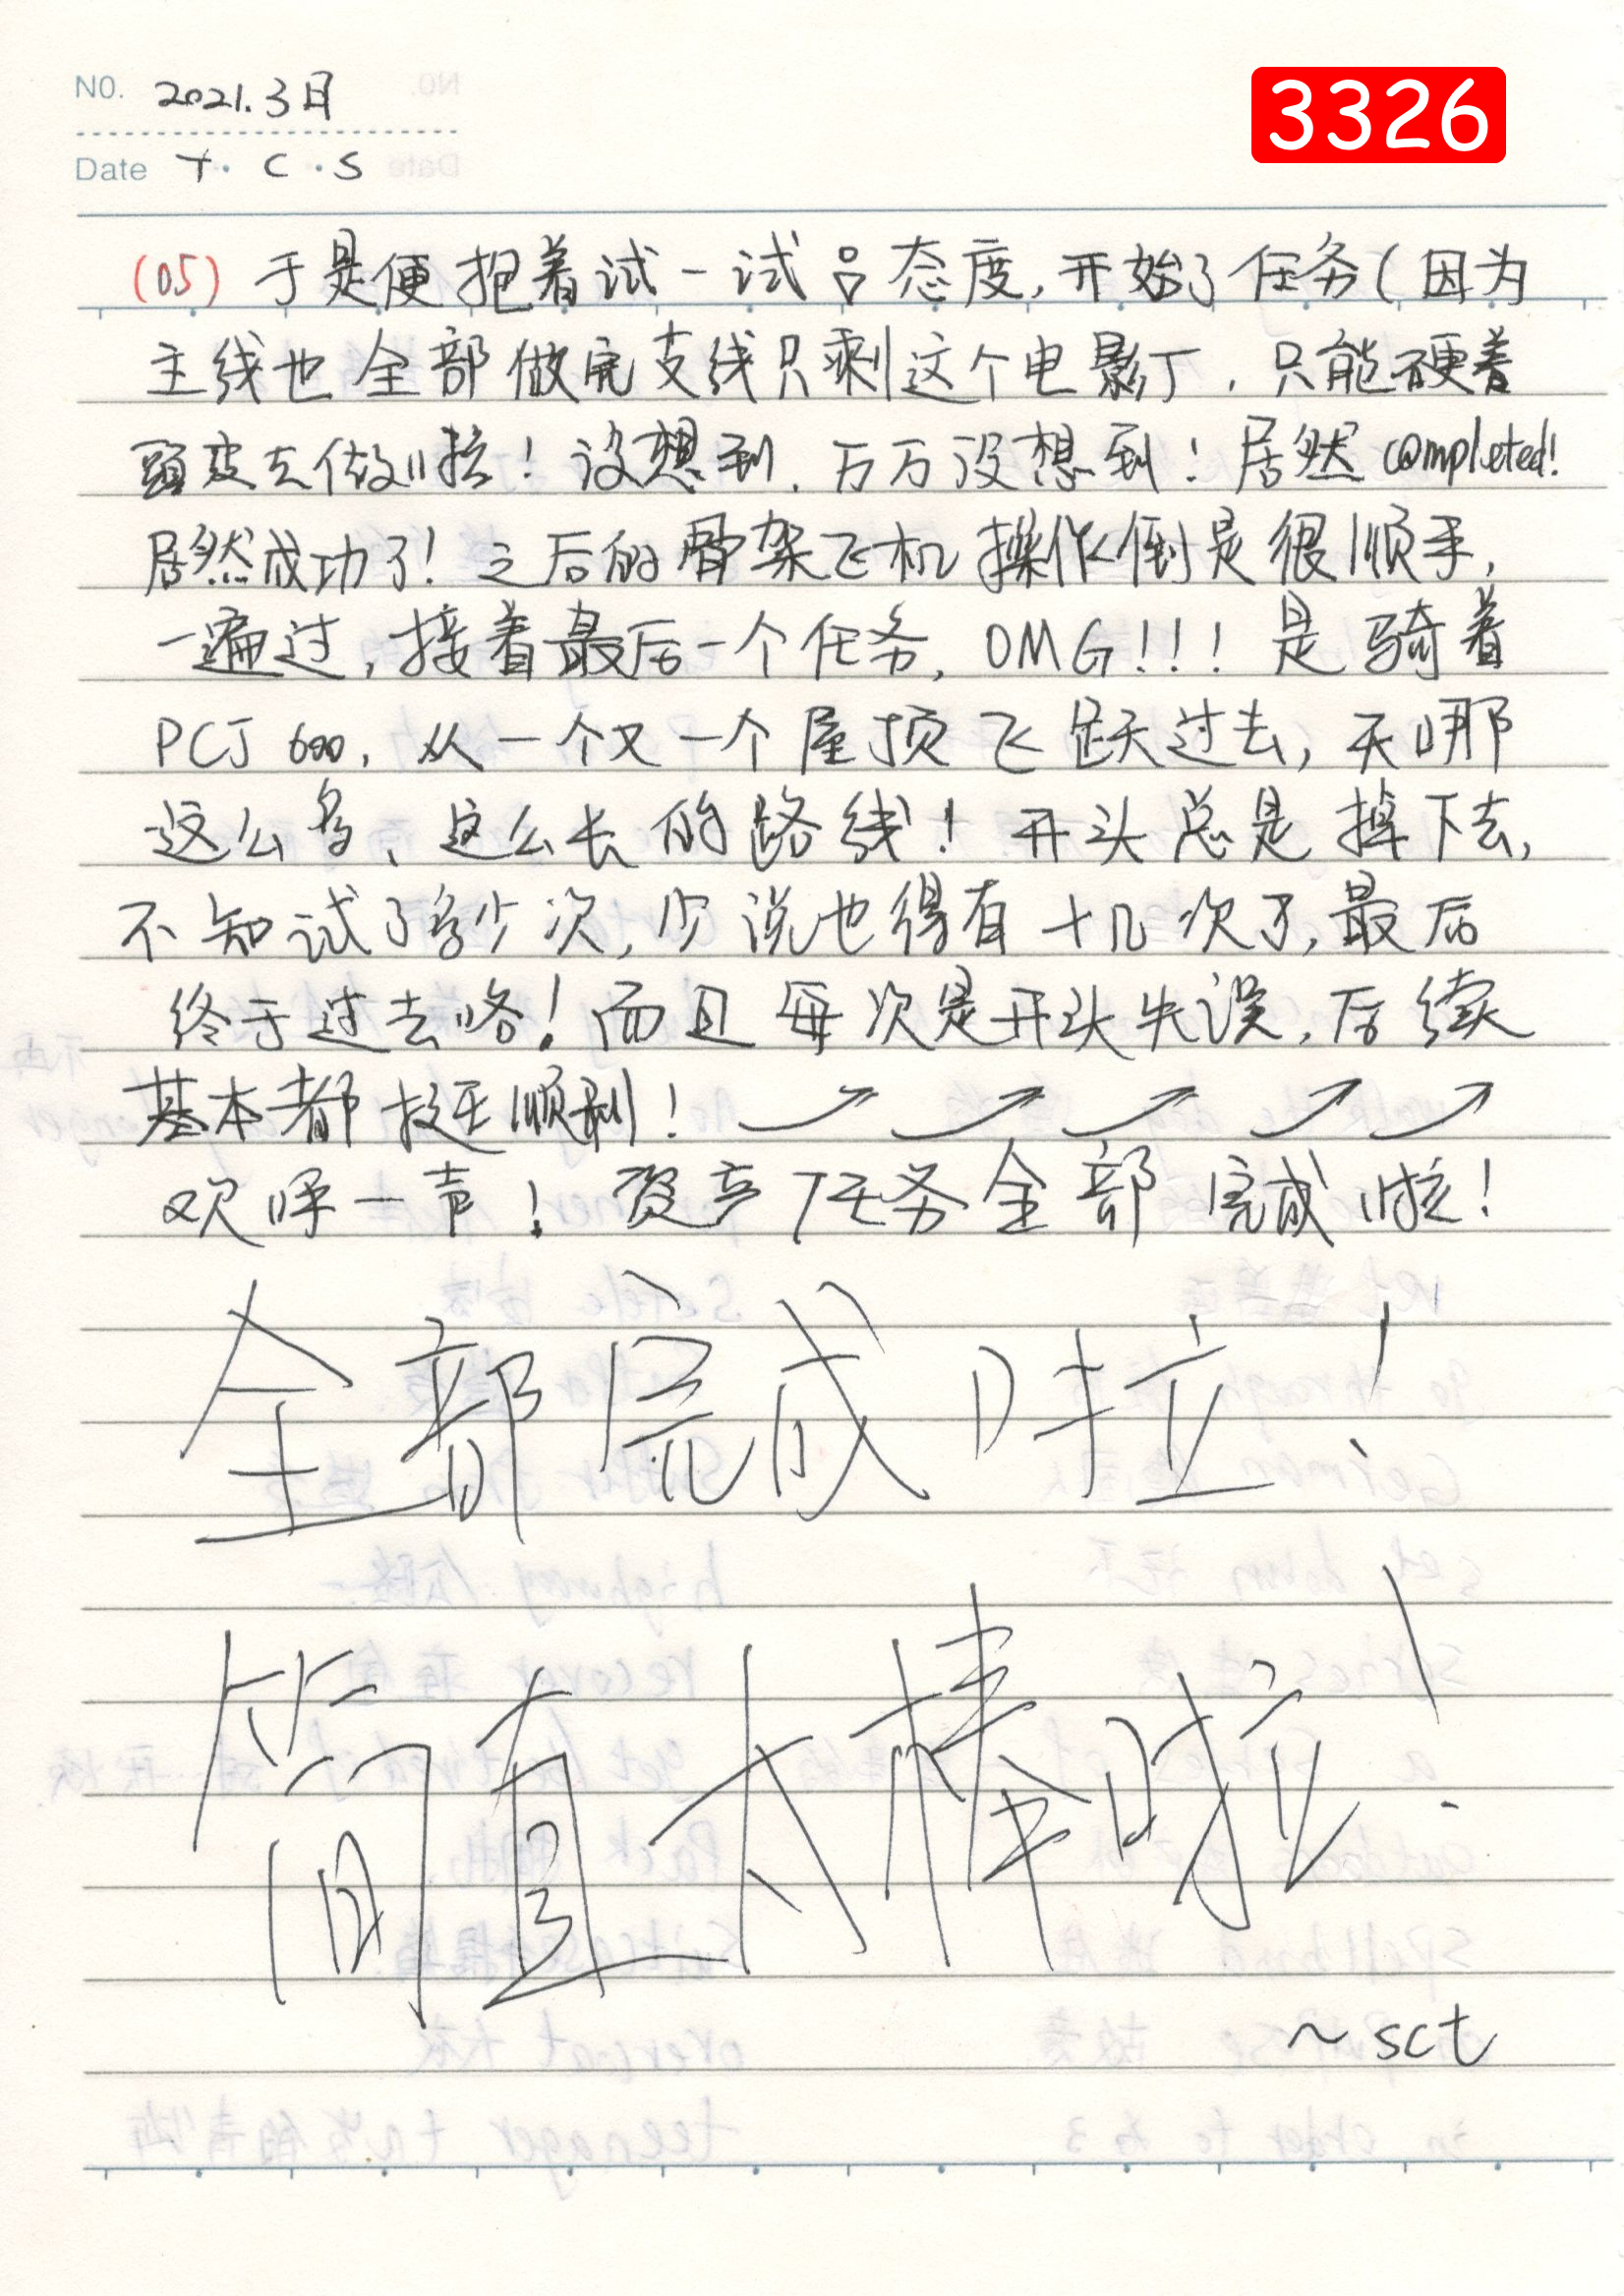 NO. 2021.3日
3326
Date T·C·S
(05) 于是便抱着试一试吕态度,开始了任务(因为
主线也全部做完支线只剩这个电影厂,只能硬着
頭皮去做啦!没想到,万万没想到!居然completed!
居然成功了!之后的骨架飞机操作倒是很顺手,
一遍过,接着最后一个任务,OMG!!!是骑着
PCJ 600,从一个又一个屋顶飞跃过去,天哪
这么多、这么长的路线!开头总是掉下去,
不知试了多少次,少说也得有十几次了,最后
终于过去咯!而且每次是开头失误,后续
基本都挺顺利!
欢呼一声!资产任务全部完成啦!
全部完成啦!
简直太棒啦!
~sct